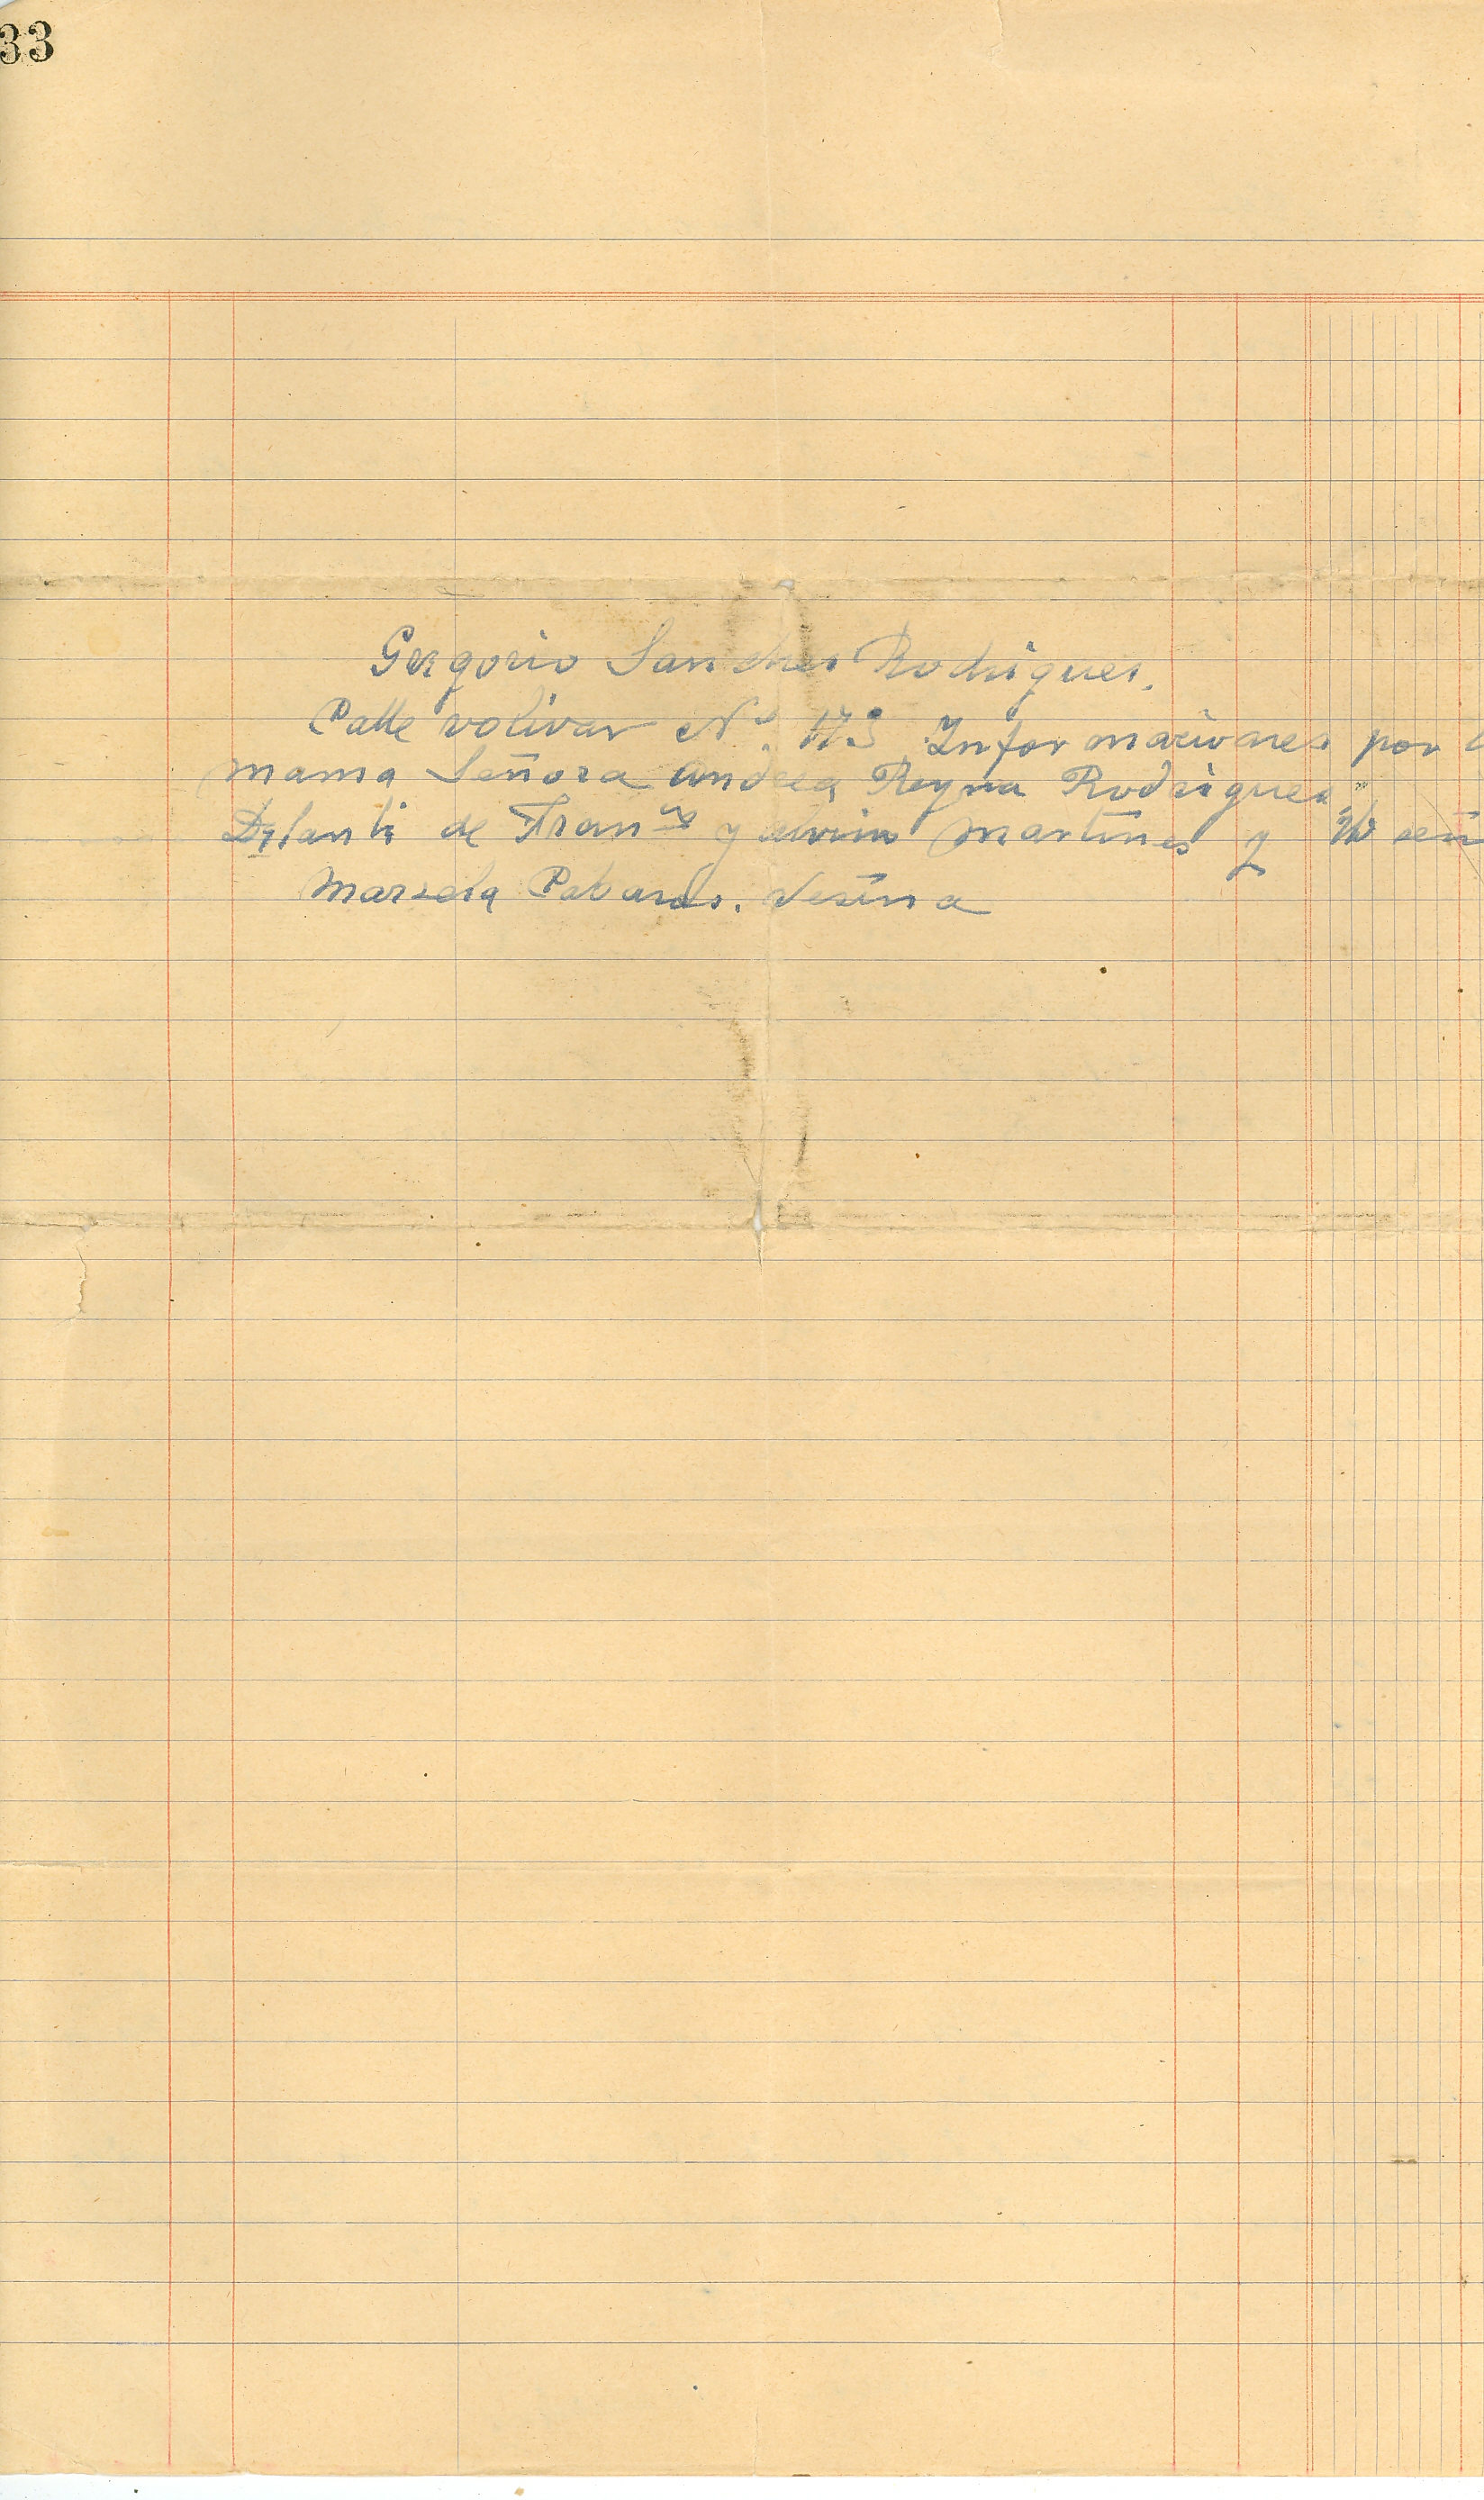 33
Gergorio Sanches Rodrigues.
Calle volivar No. 173 Informaciones por
mama Señora Andrea Reyna Rodrigues
Delante de Fran y Martines y
Marsela Vesina